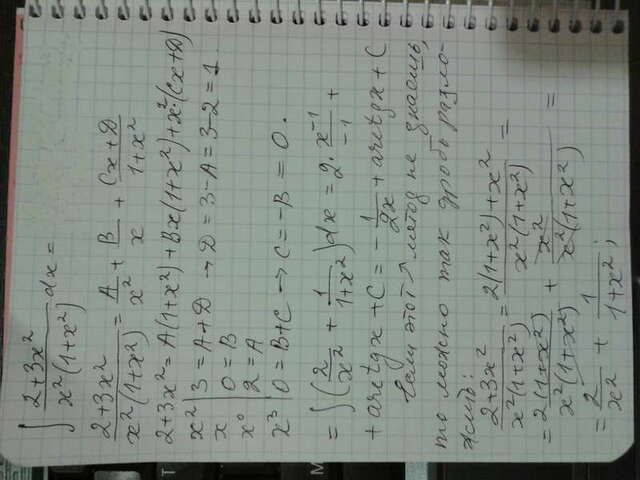 ∫ (2+3x²)/(x²(1+x²)) dx =
(2+3x²)/(x²(1+x²)) = A/x² + B/x + (Cx+D)/(1+x²)
2+3x² = A(1+x²)+Bx(1+x²)+x²·(Cx+D)
x² | 3 = A+D → D = 3-A = 3-2 = 1
x | 0 = B
x⁰ | 2 = A
x³ | 0 = B+C → C = -B = 0.
= ∫ (2/x² + 1/(1+x²)) dx = 2· x⁻¹/-1 +
+ arctgx + C = - 1/2x + arctgx + C
Если этот ↗ метод не знаешь,
то можно так дробь разло-
жить:
(2+3x²)/(x²(1+x²)) = (2(1+x²)+x²)/(x²(1+x²)) =
= 2(1+x²)/(x²(1+x²)) + x²/(x²(1+x²)) =
= 2/x² + 1/(1+x²);
T
M